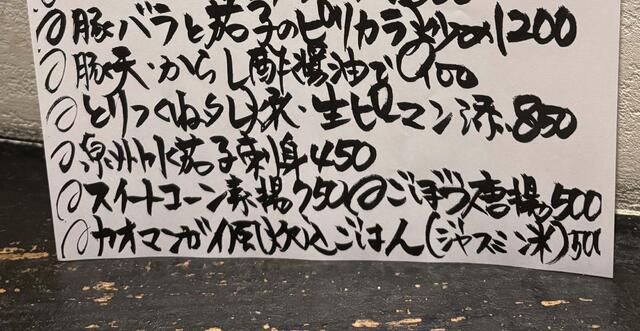 豚バラと茄子のピリカラ炒め1200
豚天・からし酢醤油で900
とりつくねタレ焼・生ピーマン添850
泉州水茄子刺身450
スイートコーン素揚750 ごぼう唐揚500
カオマンガイ風炊込ごはん(ジャスミン米)